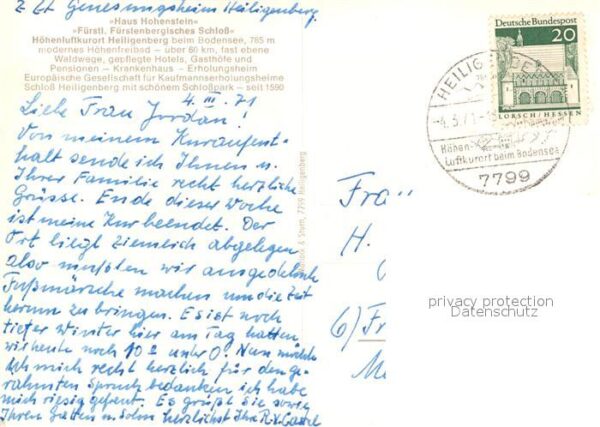 z. Zt. Genesungsheim Heiligenberg.
»Haus Hohenstein«
»Fürstl. Fürstenbergisches Schloß«
Höhenluftkurort Heiligenberg beim Bodensee, 785 m
modernes Höhenfreibad – über 60 km, fast ebene
Waldwege, gepflegte Hotels, Gasthöfe und
Pensionen – Krankenhaus – Erholungsheim
Europäische Gesellschaft für Kaufmannserholungsheime
Schloß Heiligenberg mit schönem Schloßpark – seit 1590
4. III. 71
Liebe Frau Jordan!
Von meinem Kuraufent-
halt sende ich Ihnen u.
Ihrer Familie recht herzliche
Grüsse. Ende dieser Woche
ist meine Kur beendet. Der
Ort liegt ziemlich abgelegen
also mußten wir ausgedehnte
Fußmärsche machen um die Zeit
herum zu bringen. Es ist noch
tiefer Winter hier am Tag hatten
wir heute noch 10° unter 0. Nun möchte
ich mich recht herzlich für den ge-
rahmten Spruch bedanken ich habe
mich riesig gefreut. Es grüßt Sie sowie
Ihren Gatten u. Sohn herzlichst Ihre
7799 Heiligenberg
Deutsche Bundespost
20
LORSCH/HESSEN
HEILIGENBERG
4.3.71
Höhen-
Luftkurort beim Bodensee
7799
Fra
H.
6) Fr
privacy protection
Datenschutz